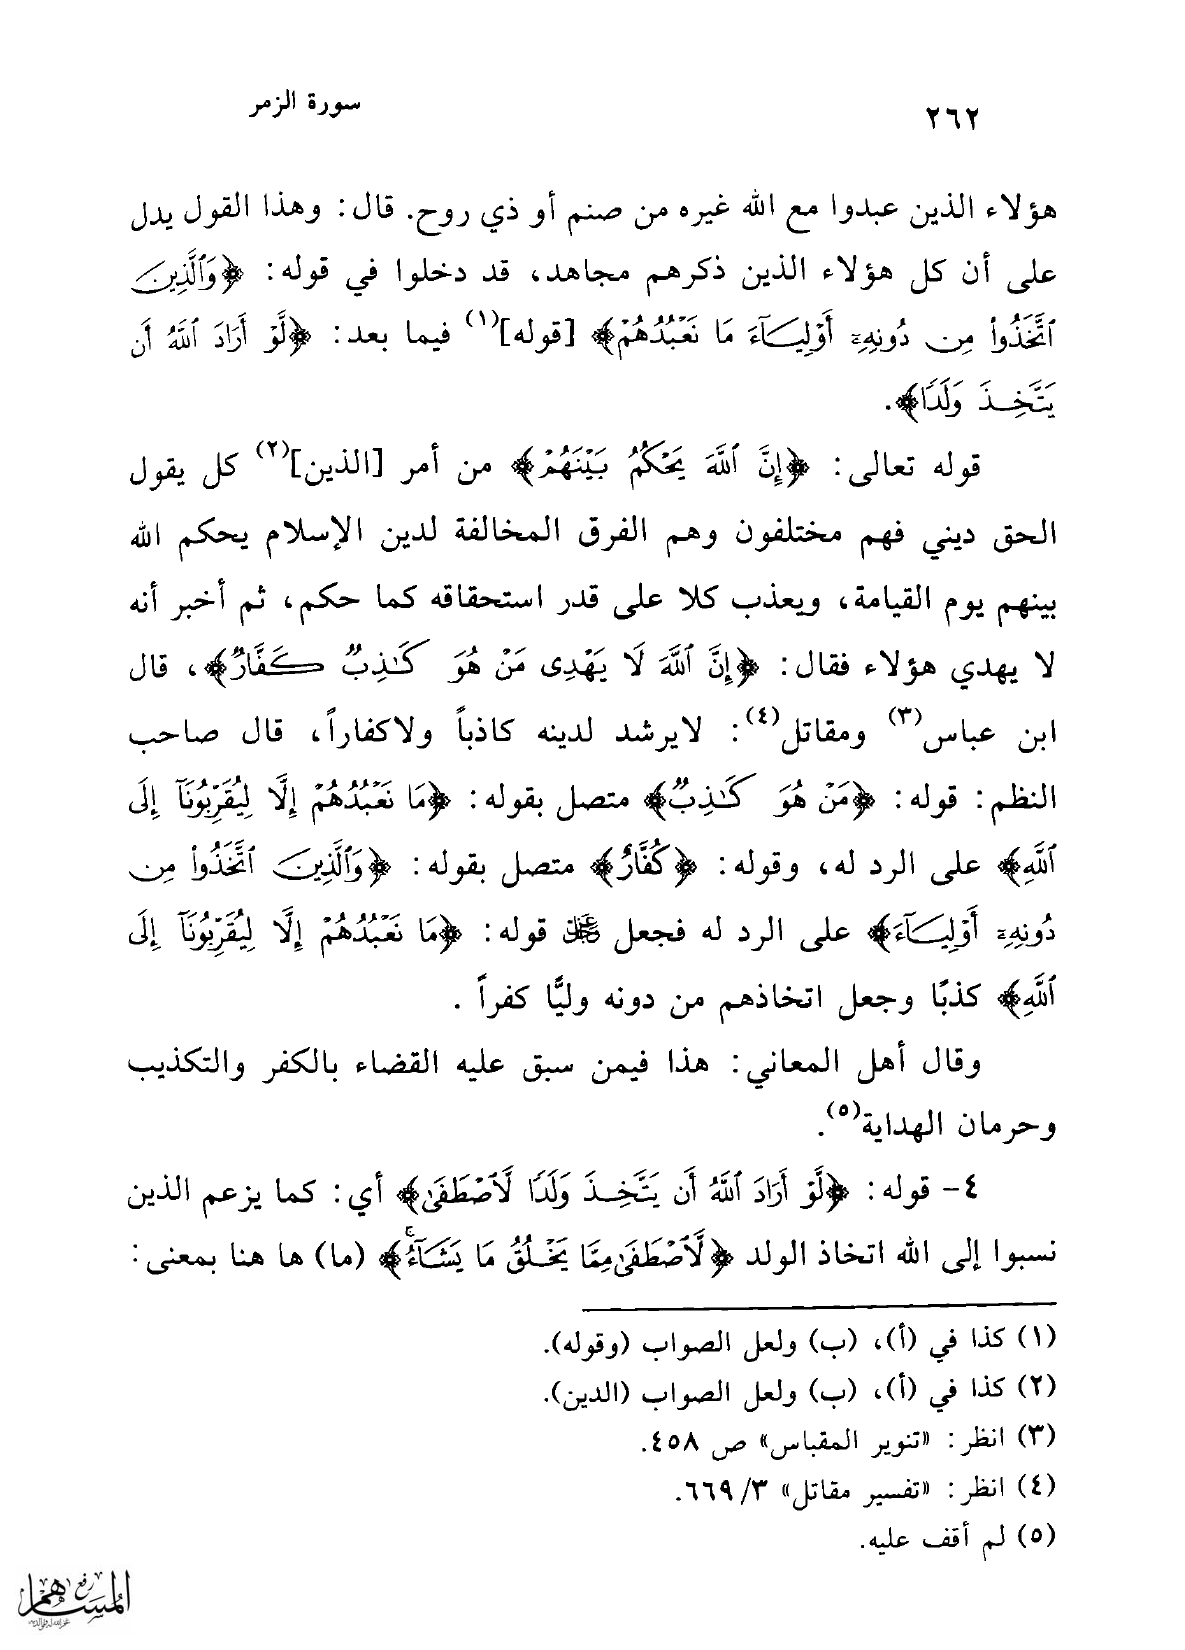 ٢٦٢ سورة الزمر
هؤلاء الذين عبدوا مع الله غيره من صنم أو ذي روح. قال: وهذا القول يدل
على أن كل هؤلاء الذين ذكرهم مجاهد، قد دخلوا في قوله: ﴿وَٱلَّذِينَ
ٱتَّخَذُواْ مِن دُونِهِۦٓ أَوۡلِيَآءَ مَا نَعۡبُدُهُمۡ﴾ [قوله](١) فيما بعد: ﴿لَّوۡ أَرَادَ ٱللَّهُ أَن
يَتَّخِذَ وَلَدًا﴾.
قوله تعالى: ﴿إِنَّ ٱللَّهَ يَحۡكُمُ بَيۡنَهُمۡ﴾ من أمر [الذين](٢) كل يقول
الحق ديني فهم مختلفون وهم الفرق المخالفة لدين الإسلام يحكم الله
بينهم يوم القيامة، ويعذب كلا على قدر استحقاقه كما حكم، ثم أخبر أنه
لا يهدي هؤلاء فقال: ﴿إِنَّ ٱللَّهَ لَا يَهۡدِى مَنۡ هُوَ كَٰذِبٌ كَفَّارٌ﴾، قال
ابن عباس(٣) ومقاتل(٤): لايرشد لدينه كاذباً ولاكفاراً، قال صاحب
النظم: قوله: ﴿مَنۡ هُوَ كَٰذِبٌ﴾ متصل بقوله: ﴿مَا نَعۡبُدُهُمۡ إِلَّا لِيُقَرِّبُونَآ إِلَى
ٱللَّهِ﴾ على الرد له، وقوله: ﴿كُفَّارٌ﴾ متصل بقوله: ﴿وَٱلَّذِينَ ٱتَّخَذُواْ مِن
دُونِهِۦٓ أَوۡلِيَآءَ﴾ على الرد له فجعل عز وجل قوله: ﴿مَا نَعۡبُدُهُمۡ إِلَّا لِيُقَرِّبُونَآ إِلَى
ٱللَّهِ﴾ كذبًا وجعل اتخاذهم من دونه وليًّا كفراً .
وقال أهل المعاني: هذا فيمن سبق عليه القضاء بالكفر والتكذيب
وحرمان الهداية(٥).
٤- قوله: ﴿لَّوۡ أَرَادَ ٱللَّهُ أَن يَتَّخِذَ وَلَدًا لَّٱصۡطَفَىٰ﴾ أي: كما يزعم الذين
نسبوا إلى الله اتخاذ الولد ﴿لَّٱصۡطَفَىٰ مِمَّا يَخۡلُقُ مَا يَشَآءُۚ﴾ (ما) ها هنا بمعنى:
(١) كذا في (أ)، (ب) ولعل الصواب (وقوله).
(٢) كذا في (أ)، (ب) ولعل الصواب (الدين).
(٣) انظر: «تنوير المقباس» ص ٤٥٨.
(٤) انظر: «تفسير مقاتل» ٣/ ٦٦٩.
(٥) لم أقف عليه.
رفع
المساهم